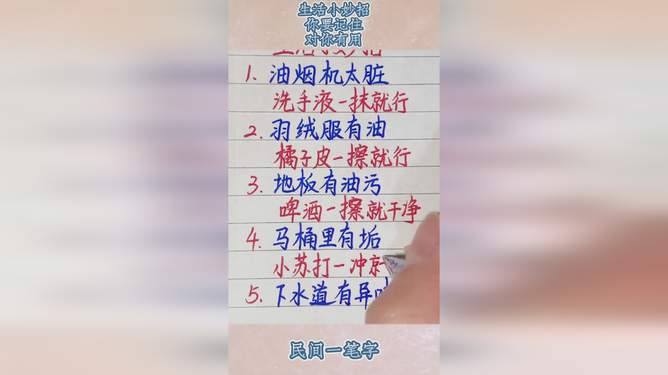 生活小妙招
你要记住
对你有用
生活小妙招
1. 油烟机太脏
洗手液一抹就行
2. 羽绒服有油
橘子皮一擦就行
3. 地板有油污
啤酒一擦就干净
4. 马桶里有垢
小苏打一冲
5. 下水道有异
民间一笔字